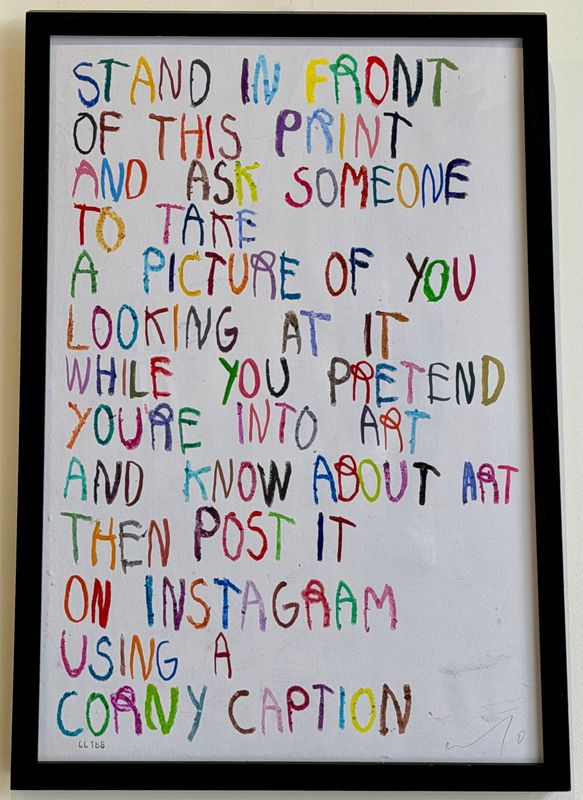 STAND IN FRONT
OF THIS PRINT
AND ASK SOMEONE
TO TAKE
A PICTURE OF YOU
LOOKING AT IT
WHILE YOU PRETEND
YOU'RE INTO ART
AND KNOW ABOUT ART
THEN POST IT
ON INSTAGRAM
USING A
CORNY CAPTION
LL188